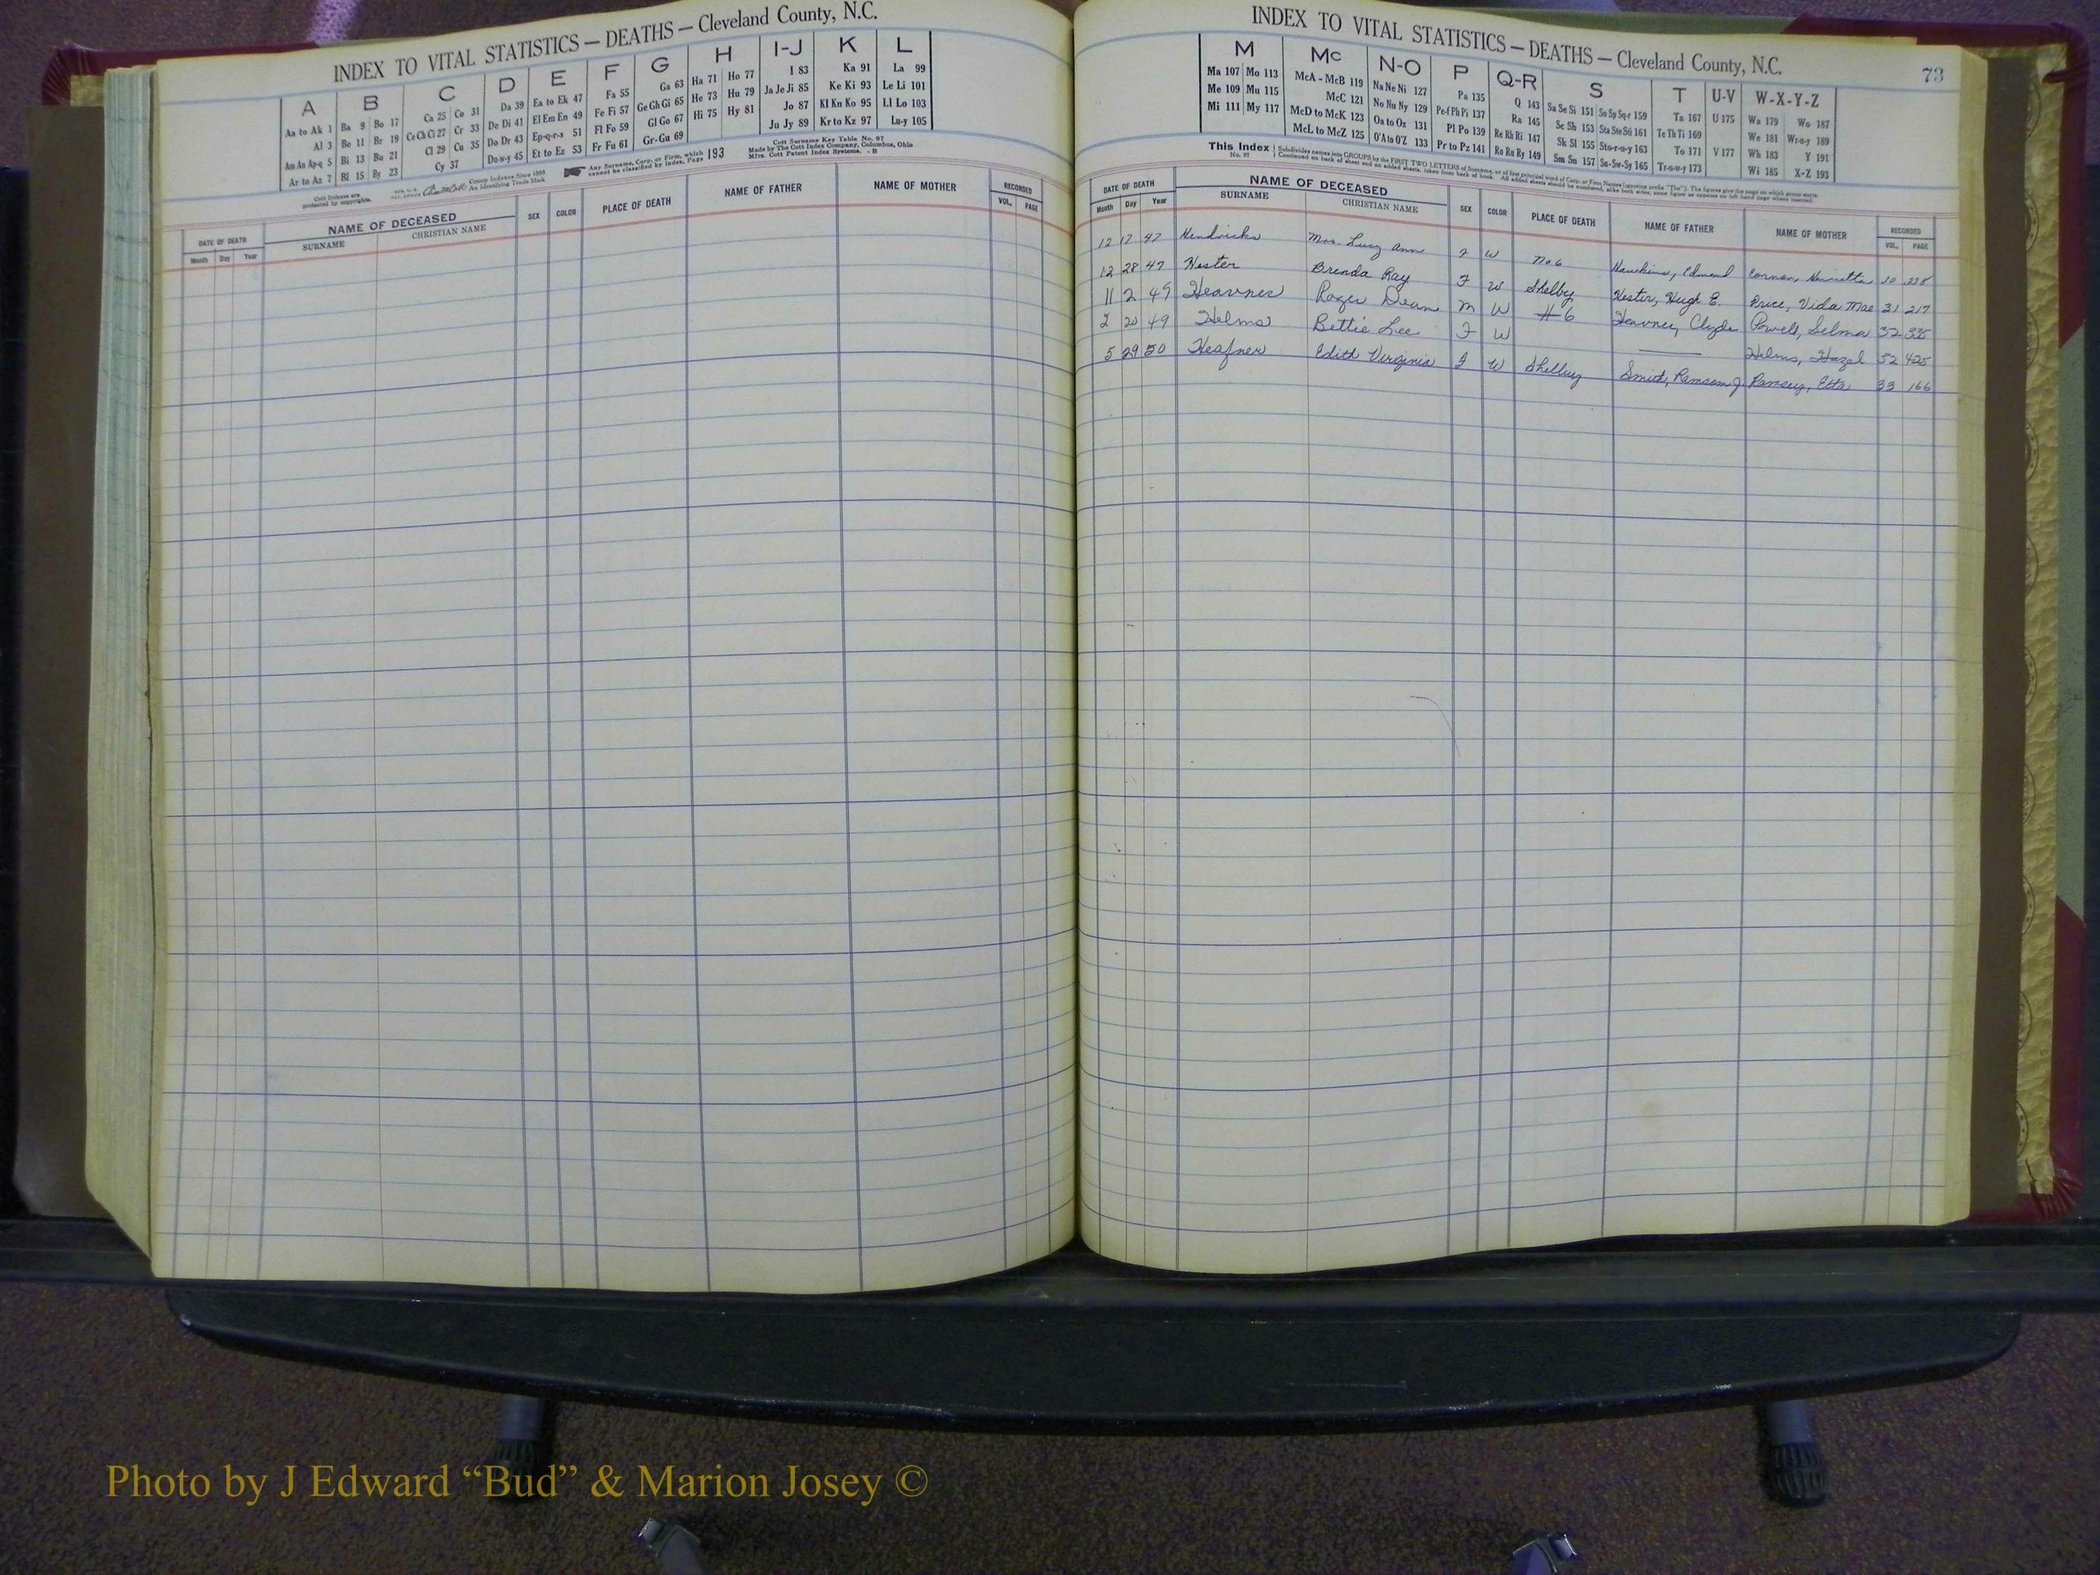 INDEX TO VITAL STATISTICS — DEATHS — Cleveland County, N.C.
A B C D E F G H I-J K L
Aa to Ak 1 Ba 9 Bo 17 Ca 25 Co 31 Da 39 Ea to Ek 47 Fa 55 Ga 63 Ha 71 Ho 77 I 83 Ka 91 La 99
Al 3 Be 11 Br 19 Ce Ch Ci 27 Cr 33 De Di 41 El Em En 49 Fe Fi 57 Ge Gh Gi 65 He 73 Hu 79 Ja Je Ji 85 Ke Ki 93 Le Li 101
Am An Ap-q 5 Bi 13 Bu 21 Cl 29 Cu 35 Do Dr 43 Ep-q-r-s 51 Fl Fo 59 Gl Go 67 Hi 75 Hy 81 Jo 87 Kl Kn Ko 95 Ll Lo 103
Ar to Az 7 Bl 15 By 23 Cy 37 Du-w-y 45 Et to Ez 53 Fr Fu 61 Gr-Gu 69 Ju Jy 89 Kr to Kz 97 Lu-y 105
Cott Indexes are protected by copyrights.
County Indexes Since 1888
An Identifying Trade Mark
Any Surname, Corp. or Firm, which cannot be classified by Index, Page 193
Cott Surname Key Table No. 97
Made by The Cott Index Company, Columbus, Ohio
Mfrs. Cott Patent Index Systems. - B
DATE OF DEATH NAME OF DECEASED SEX COLOR PLACE OF DEATH NAME OF FATHER NAME OF MOTHER RECORDED
Month Day Year SURNAME CHRISTIAN NAME VOL. PAGE
INDEX TO VITAL STATISTICS — DEATHS — Cleveland County, N.C. 73
M Mc N-O P Q-R S T U-V W-X-Y-Z
Ma 107 Mo 113 McA - McB 119 Na Ne Ni 127 Pa 135 Q 143 Sa Se Si 151 So Sp Sq-r 159 Ta 167 U 175 Wa 179 Wo 187
Me 109 Mu 115 McC 121 No Nu Ny 129 Pe-f Ph Pi 137 Ra 145 Sc Sh 153 Sta Ste Sti 161 Te Th Ti 169 We 181 Wr-u-y 189
Mi 111 My 117 McD to McK 123 Oa to Oz 131 Pl Po 139 Re Rh Ri 147 Sk Sl 155 Sto-r-u-y 163 To 171 V 177 Wh 183 Y 191
McL to McZ 125 O'A to O'Z 133 Pr to Pz 141 Ro Ru Ry 149 Sm Sn 157 Su-Sw-Sy 165 Tr-u-w-y 173 Wi 185 X-Z 193
This Index No. 97 Subdivides names into GROUPS by the FIRST TWO LETTERS of Surname, or of first principal word of Corp. or Firm Names (ignoring prefix "The"). The figures give the page on which group starts.
Continued on back of sheet and on added sheets, taken from back of book. All added sheets should be numbered, alike both sides, same figure as appears on left hand page where inserted.
DATE OF DEATH NAME OF DECEASED SEX COLOR PLACE OF DEATH NAME OF FATHER NAME OF MOTHER RECORDED
Month Day Year SURNAME CHRISTIAN NAME VOL. PAGE
12 17 47 Hendricks Mrs. Lucy Ann F W No 6 Hawkins, Edmond 30 238
12 28 47 Hester Brenda Ray F W Shelby Hester, Hugh E. Price, Vida Mae 31 217
11 2 49 Heavner Roger Dean M W #6 Heavner, Clyde Powell, Selma 32 335
2 20 49 Helms Bettie Lee F W —— Helms, Hazel 32 425
5 29 50 Heafner Edith Virginia F W Shelby Smith, Ransom J. Ramsey, Etta 33 166
Photo by J Edward “Bud” & Marion Josey ©